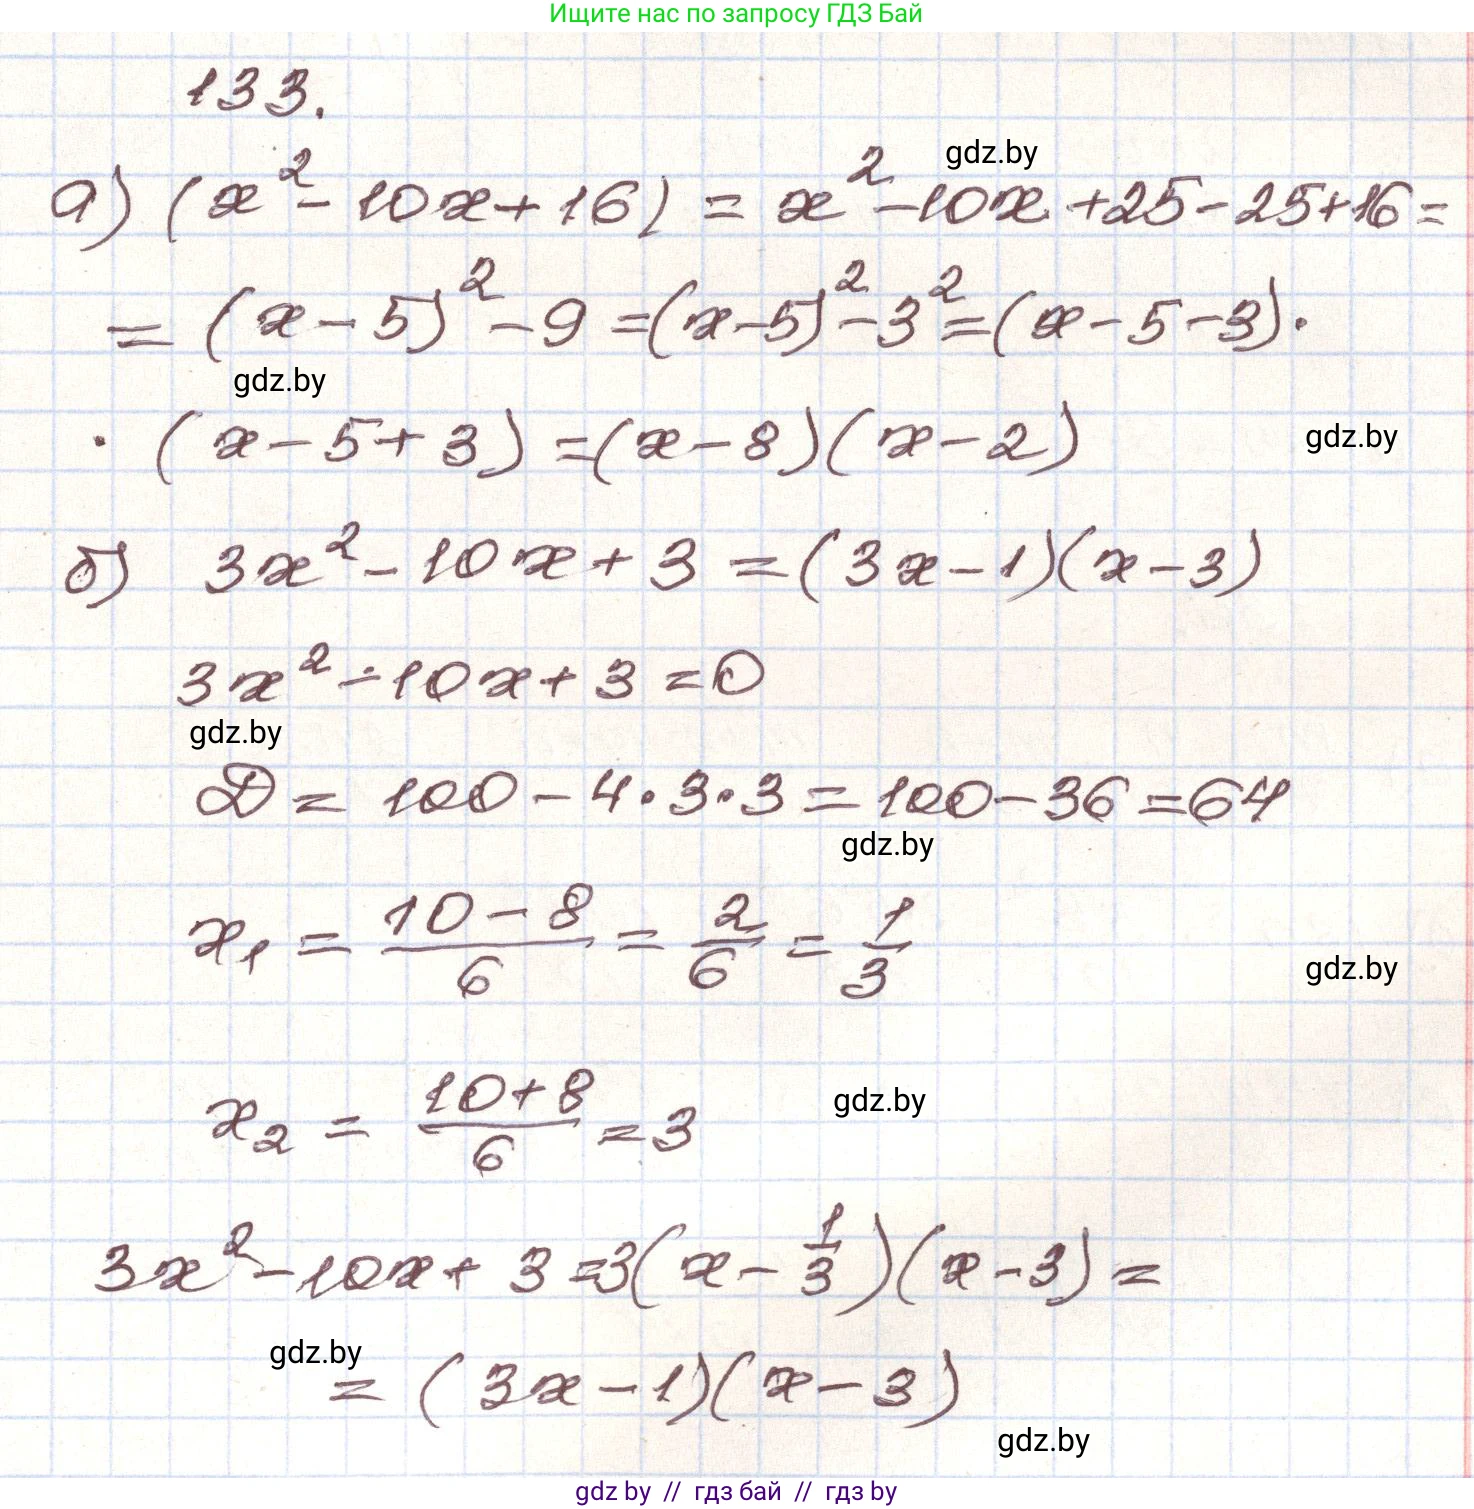 Ищите нас по запросу ГДЗ Бай
133.
gdz.by
а) (x² - 10x + 16) = x² - 10x + 25 - 25 + 16 =
= (x - 5)² - 9 = (x - 5)² - 3² = (x - 5 - 3) ·
gdz.by
· (x - 5 + 3) = (x - 8)(x - 2)
gdz.by
б) 3x² - 10x + 3 = (3x - 1)(x - 3)
3x² - 10x + 3 = 0
gdz.by
D = 100 - 4 · 3 · 3 = 100 - 36 = 64
gdz.by
x₁ = (10 - 8)/6 = 2/6 = 1/3
gdz.by
x₂ = (10 + 8)/6 = 3
gdz.by
3x² - 10x + 3 = 3(x - 1/3)(x - 3) =
gdz.by
= (3x - 1)(x - 3)
gdz.by
gdz by // гдз бай // гдз by